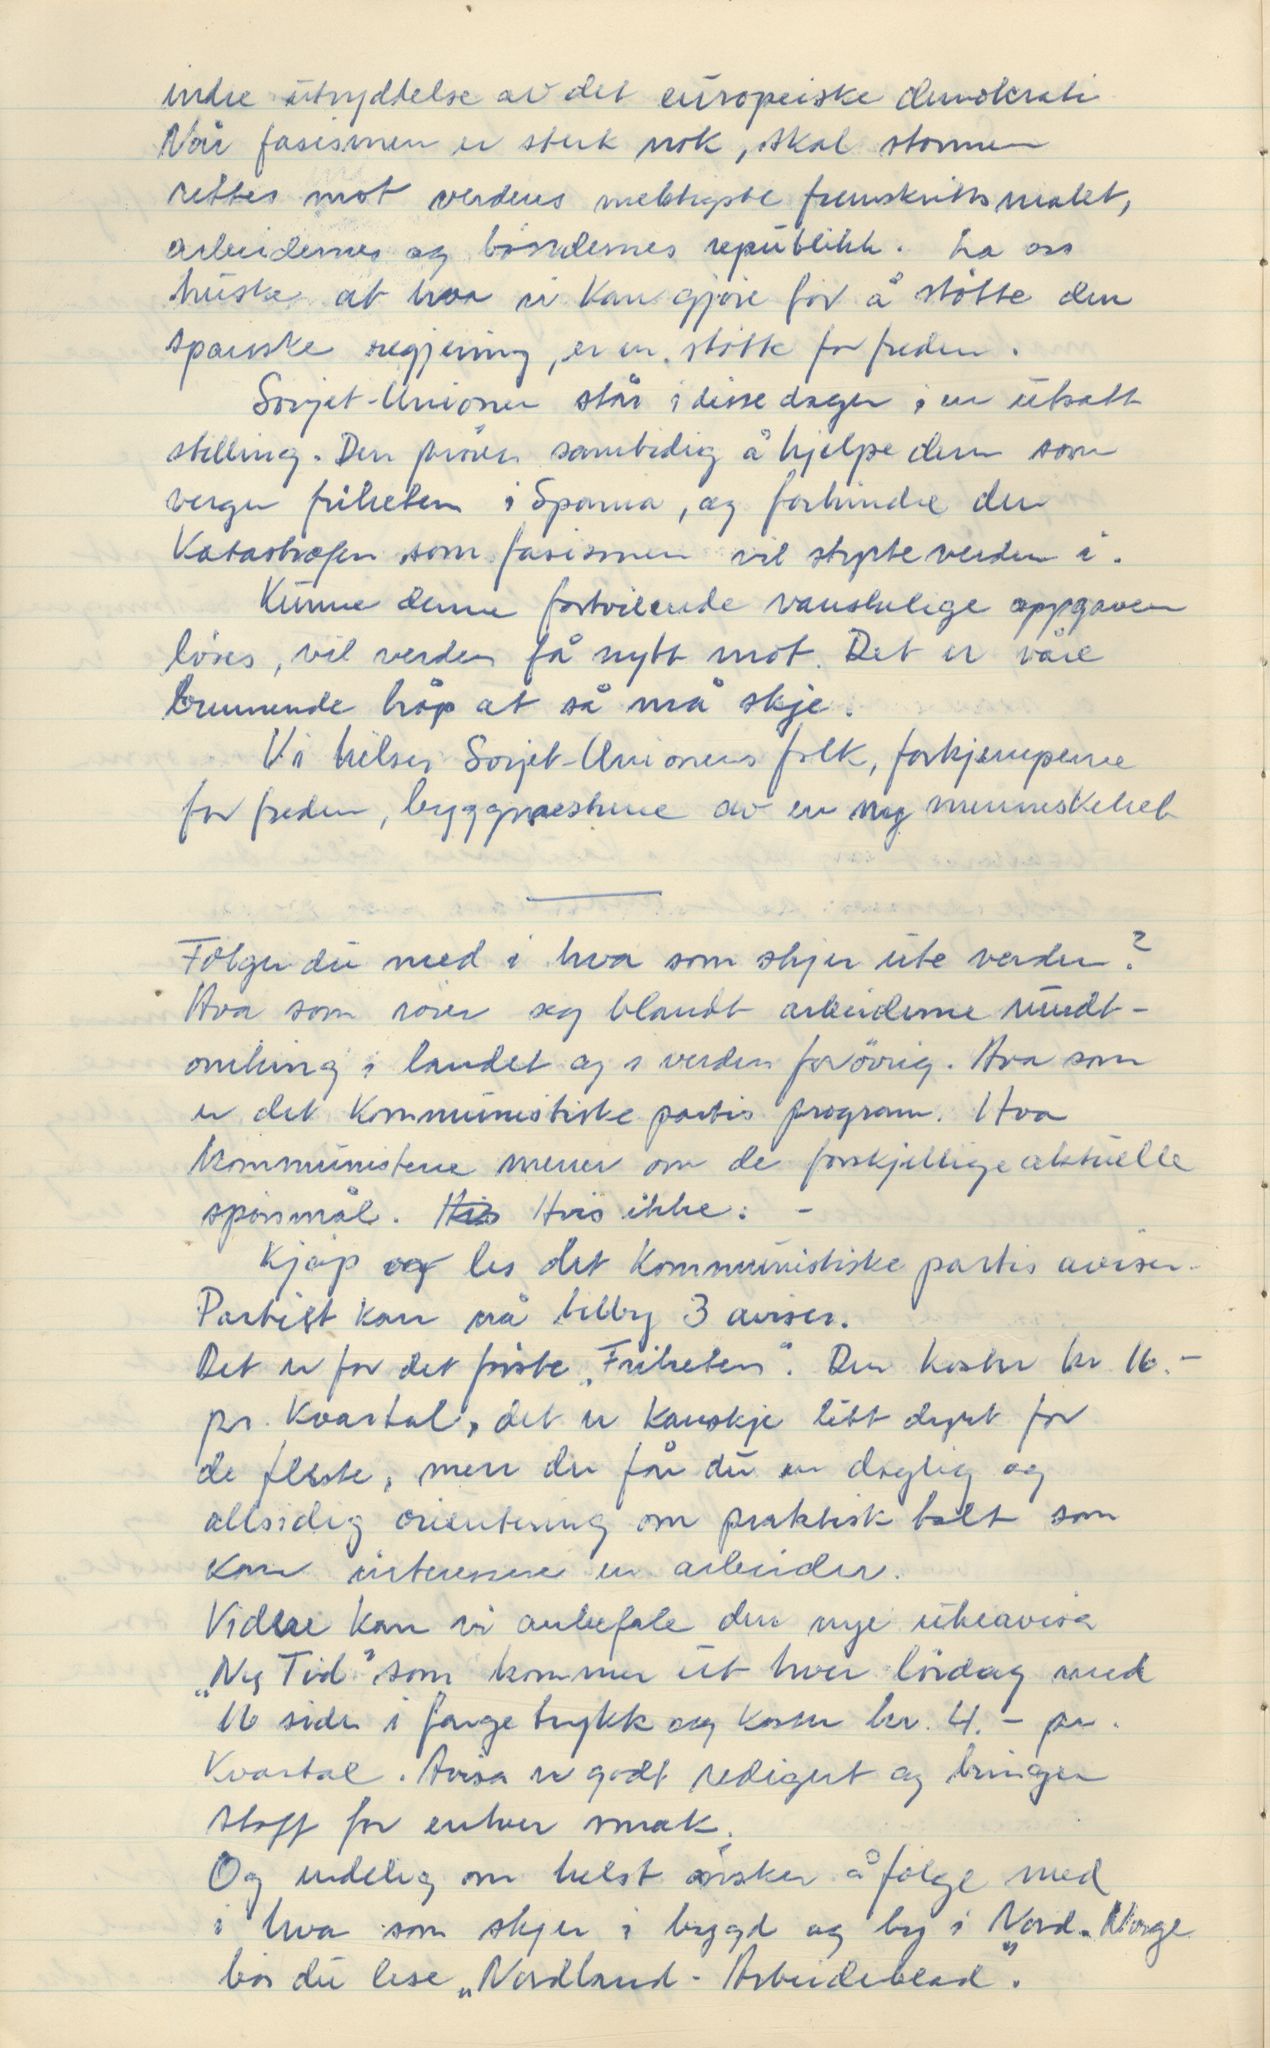 indre utryddelse av det europeiske demokrati
Når fasismen er sterk nok, skal stormen
rettes mot verdens mektigste fremskrittsmakt,
arbeidernes og bøndernes republikk. La oss
huske at hva vi kan gjøre for å støtte den
spanske regjering, er en støtte for freden.
Sovjet-Unionen står i disse dager i en utsatt
stilling. Den prøver samtidig å hjelpe dem som
verger friheten i Spania, og forhindre den
katastrofen som fasismen vil styrte verden i.
Kunne denne fortvilende vanskelige oppgaven
løses, vil verden få nytt mot. Det er våre
brennende håp at så må skje.
Vi hilser Sovjet-Unionens folk, forkjemperne
for freden, byggmestrene av en ny menneskehet
Følger du med i hva som skjer ute verden?
Hva som rører seg blandt arbeiderne rundt-
omkring i landet og i verden forøvrig. Hva som
er det kommunistiske partis program. Hva
kommunistene mener om de forskjellige aktuelle
spørsmål. His Hvis ikke: -
Kjøp og les det kommunistiske partis aviser.
Partiet kan nå tilby 3 aviser.
Det er for det første „Friheten". Den koster kr 16.-
pr. Kvartal, det er kanskje litt dyrt for
de fleste, men du får du en daglig og
allsidig orientering om praktisk talt som
kan interessere en arbeider.
Videre kan vi anbefale den nye ukeavisa
„Ny Tid" som kommer ut hver lørdag med
16 sider i farge trykk og koster kr. 4. - pr.
Kvartal. Avisa er godt redigert og bringer
stoff for enhver smak.
Og endelig om helst ønsker å følge med
i hva som skjer i bygd og by i Nord-Norge
bør du lese „Nordland - Arbeiderblad".